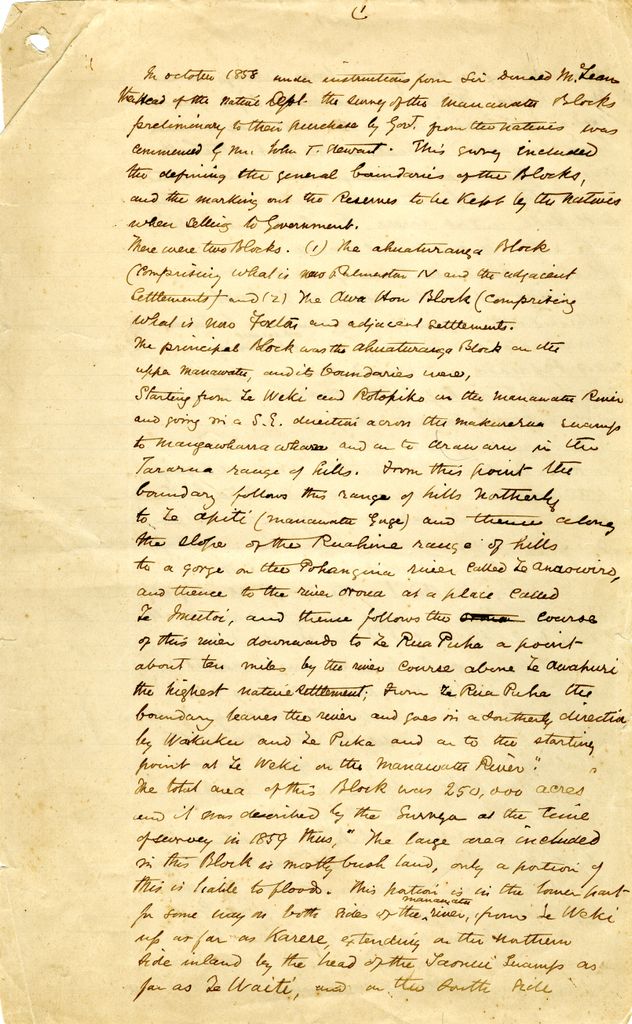 In october 1858 under instructions from Sir Donald McLean
the Head of the Native Dept. the survey of the Manawatu Blocks
preliminary to their purchase by Govt. from the natives was
commenced by Mr. John T. Stewart. This survey included
the defining the general boundaries of the Blocks,
and the marking out the Reserves to be kept by the natives
when selling to Government.
There were two Blocks. (1) The ahuaturanga Block
(comprising what is now Palmerston N and the adjacent
settlements) and (2) The Awa Hou Block (comprising
what is now Foxton and adjacent settlements.
The principal Block was the ahuaturanga Block on the
upper Manawatu, and its boundaries were,
Starting from Te Weki and Rotopiko on the Manawatu River
and going in a S.E. direction across the makurerua swamp
to Mangawharawhara and on to in the
Tararua range of hills. From this point the
boundary follows this range of hills Northerly
to Te apiti (manawatu Gorge) and thence along
the slope of the Ruahine range of hills
to a gorge on the Pohangina river called
and thence to the river oroua at a place called
Te and thence follows the course
of this river downwards to Te Rua Puha a point
about ten miles by the river course above Te Awahuri
the highest native settlement; From Te Rua Puha the
boundary leaves the river and goes in a southerly direction
by Wakuku and Te Puka and on to the starting
point at Te Weki on the Manawatu River".
The total area of this Block was 250,000 acres
and it was described by the Surveyor at the time
of survey in 1859 thus, "The large area included
in this Block is mostly bush land, only a portion of
this is liable to floods. This portion is in the lower part
for some way on both sides of the manawatu river, from Te Weki
up as far as Karere, extending on the northern
side inland by the head of the Taonui Swamp as
far as Te Waiti, and on the south side